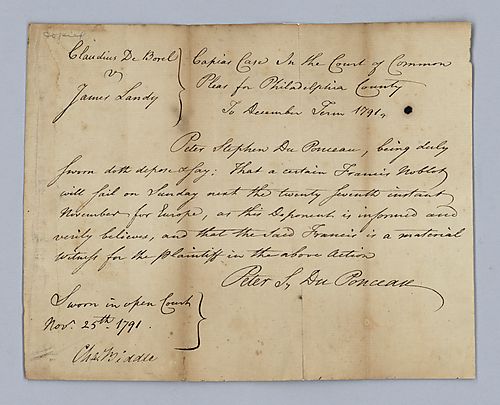 Copied
Claudius De Borel
v
James Landy
Capias Case In the Court of Common
Pleas for Philadelphia County
To December Term 1791.
Peter Stephen Du Ponceau, being duly
sworn doth depose & say: That a certain Francis Noblot
will sail on Sunday next the twenty seventh instant
November for Europe, as this Deponent is informed and
verily believes, and that the said Francis is a material
witness for the Plaintiff in the above Action
Peter S. Du Ponceau
Sworn in open Court
Nov. 25th. 1791.
Chas Biddle